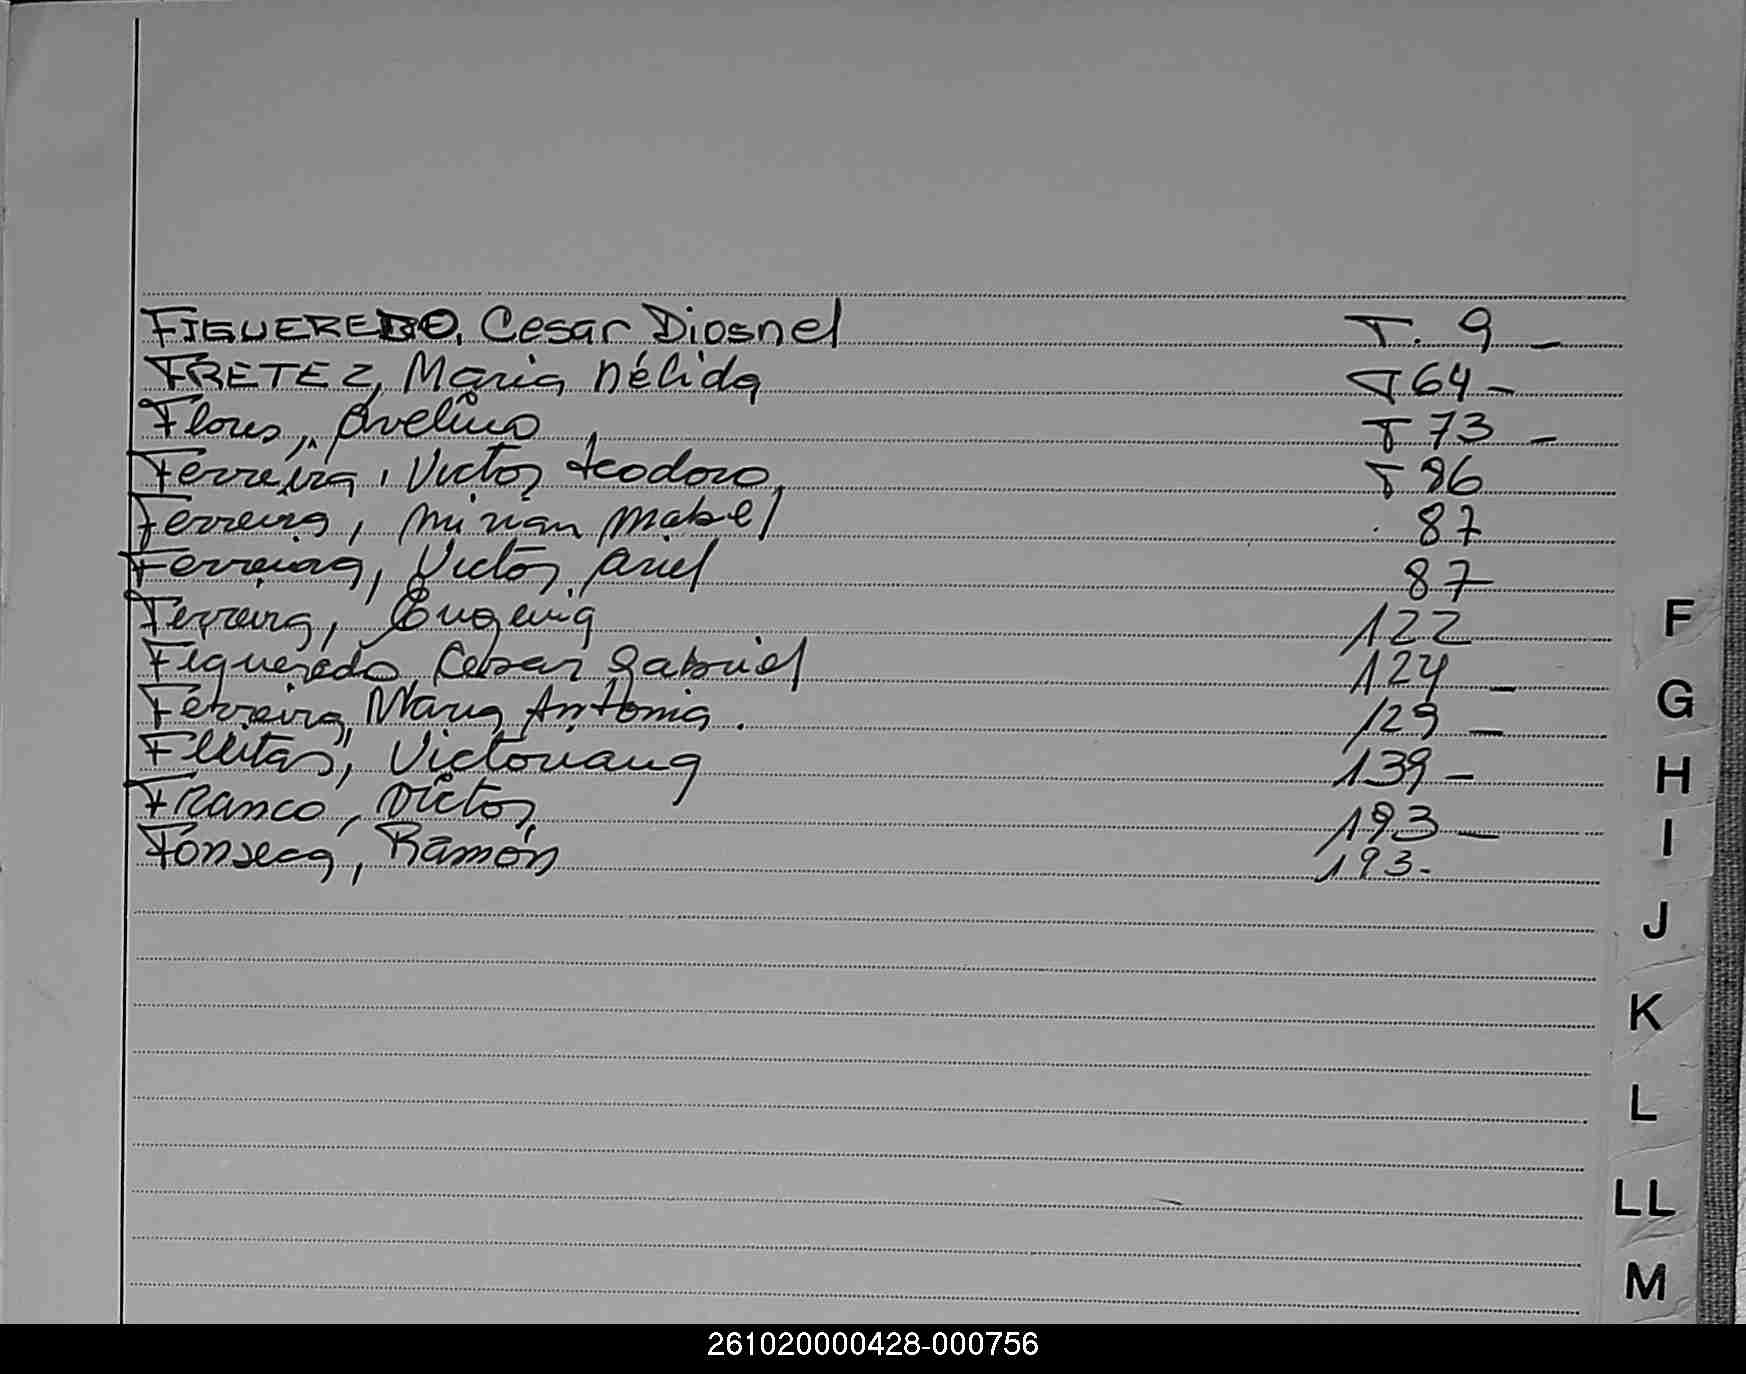 FIGUEREDO, Cesar Diosnel T. 9 -
FRETEZ, Maria Nélida T 64 -
Flores, Avelino T 73 -
Ferreira, Victor teodoro T 86
Ferreira, Mirian Mabel 87
Ferreira, Victor Ariel 87
Ferreira, Eugenia 122
Figueredo Cesar Gabriel 124 -
Ferreira, Maria Antonia. 129 -
Fleitas, Victoriana 139 -
Franco, Victor 193 -
Fonseca, Ramón 193 -
F
G
H
I
J
K
L
LL
M
261020000428-000756